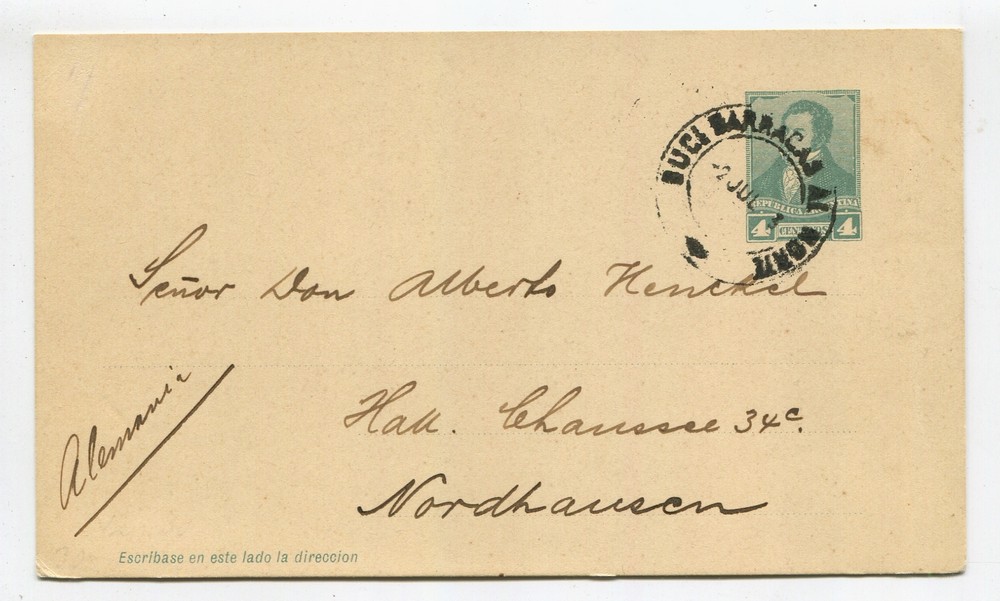 SUC! BARRACAS AL NORTE
2 JUL
REPÚBLICA ARGENTINA
4 CENTAVOS 4
Señor Don Alberto Henckel
Hall. Chaussee 34c.
Nordhausen
Alemania
Escríbase en este lado la direccion